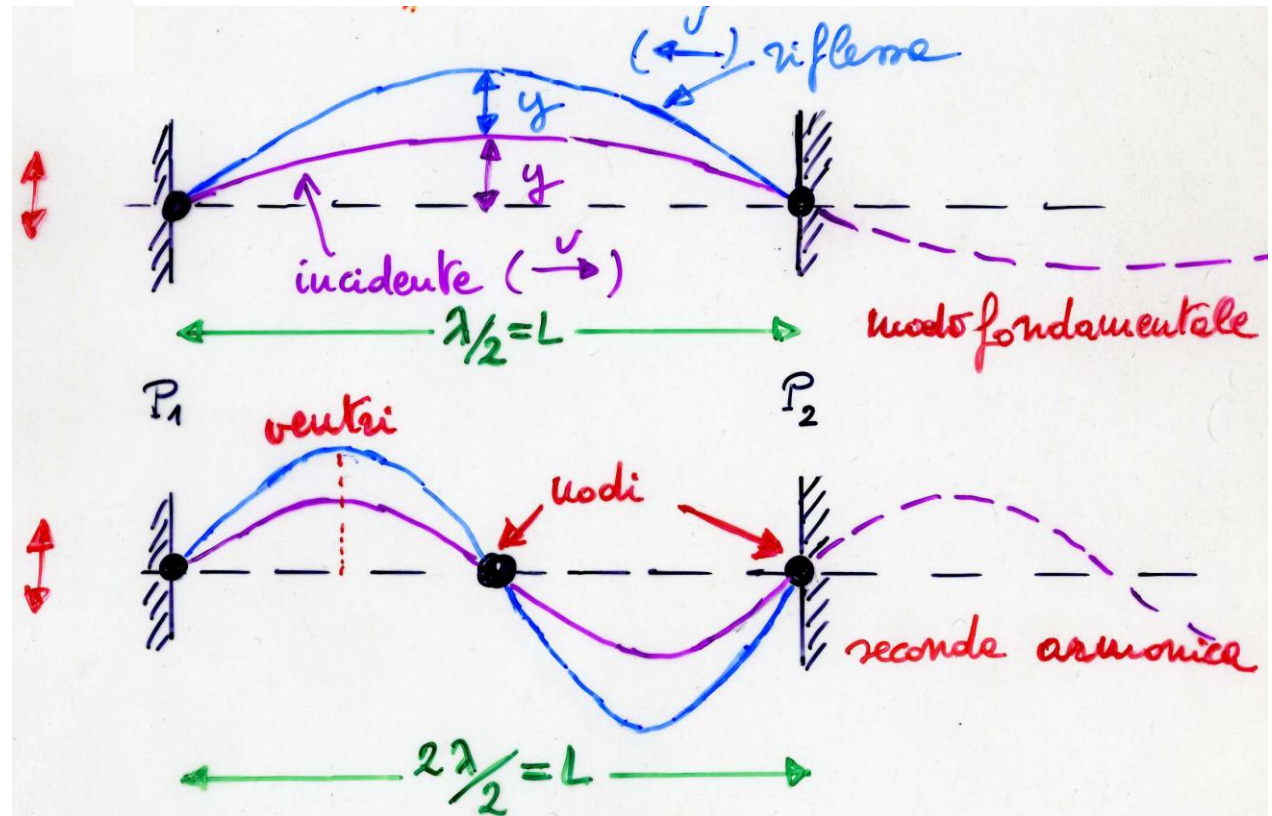 v
(←) riflessa
y
y
incidente (→)
v
λ/2 = L
modo fondamentale
P₁
P₂
ventri
nodi
seconda armonica
2λ/2 = L